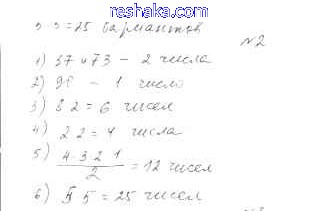 reshaka.com
5 5=25 вариантов
№2
1) 37 и 73 - 2 числа
2) 98 - 1 число
3) 8 2 = 6 чисел
4) 2 2 = 4 числа
5) 4 3 2 1 / 2 = 12 чисел
6) 5 5 = 25 чисел